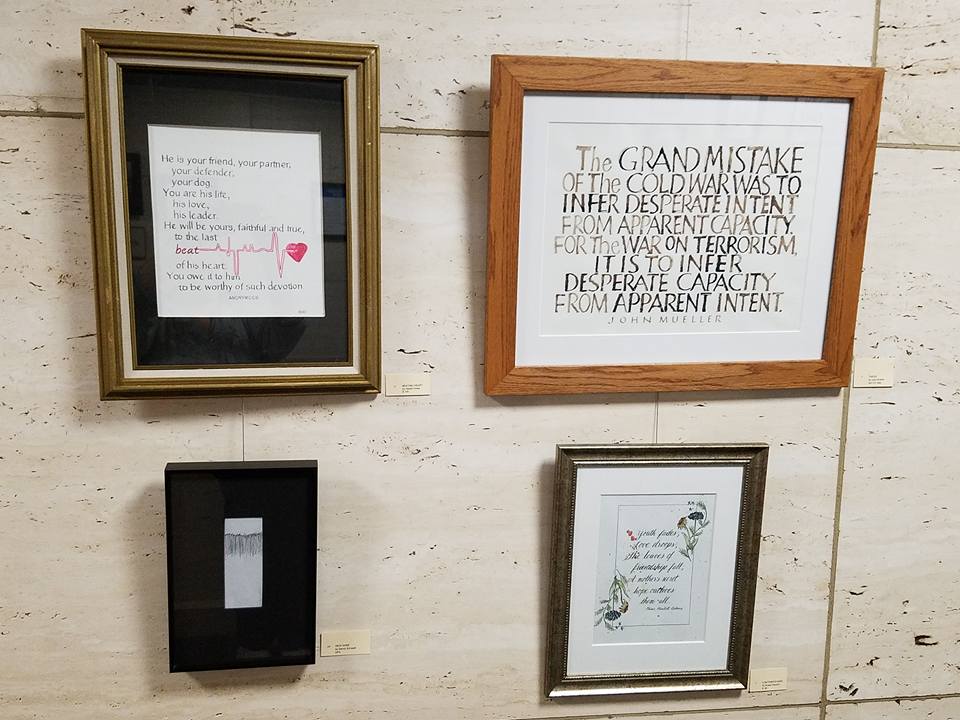 He is your friend, your partner,
your defender,
your dog.
You are his life,
his love,
his leader.
He will be yours, faithful and true,
to the last
beat
of his heart.
You owe it to him
to be worthy of such devotion.
ANONYMOUS
The GRAND MISTAKE
OF The COLD WAR WAS TO
INFER DESPERATE INTENT
FROM APPARENT CAPACITY.
FOR The WAR ON TERRORISM,
IT IS TO INFER
DESPERATE CAPACITY
FROM APPARENT INTENT.
JOHN MUELLER
Youth fades;
Love droops;
the leaves of
friendship fall;
A mother's secret
hope outlives
them all.